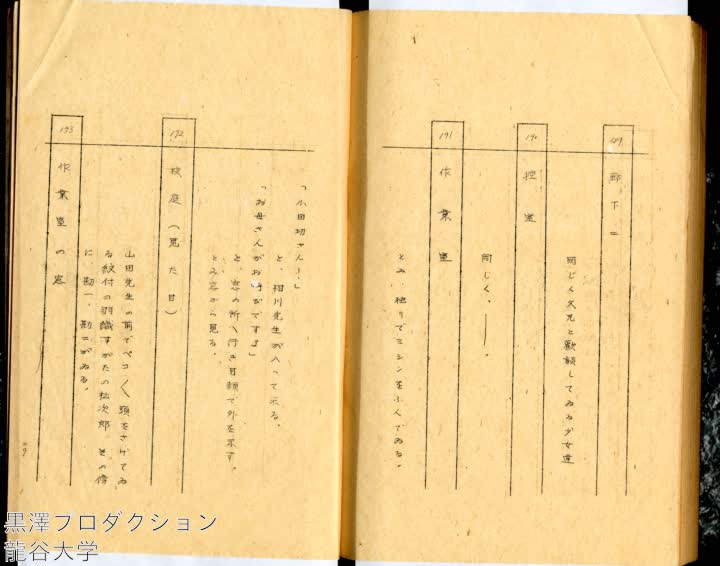 189
廊下ニ
同じく父兄と歓談してゐる少女達
190
控室
同じく。――。
191
作業室
とみ、独りでミシンをふんでゐる。
「小田切さん！」
と、相川先生が入って来る。
「お母さんがお呼びですよ」
と、窓の所へ行き目顔で外を示す。
とみ窓から見る。
192
校庭（見た目）
山田先生の前でペコ〳〵頭をさげてゐ
る紋付の羽織すがたの松次郎、その傍
に、勘一、勘二がゐる。
193
作業室の窓
黒澤プロダクション
龍谷大学